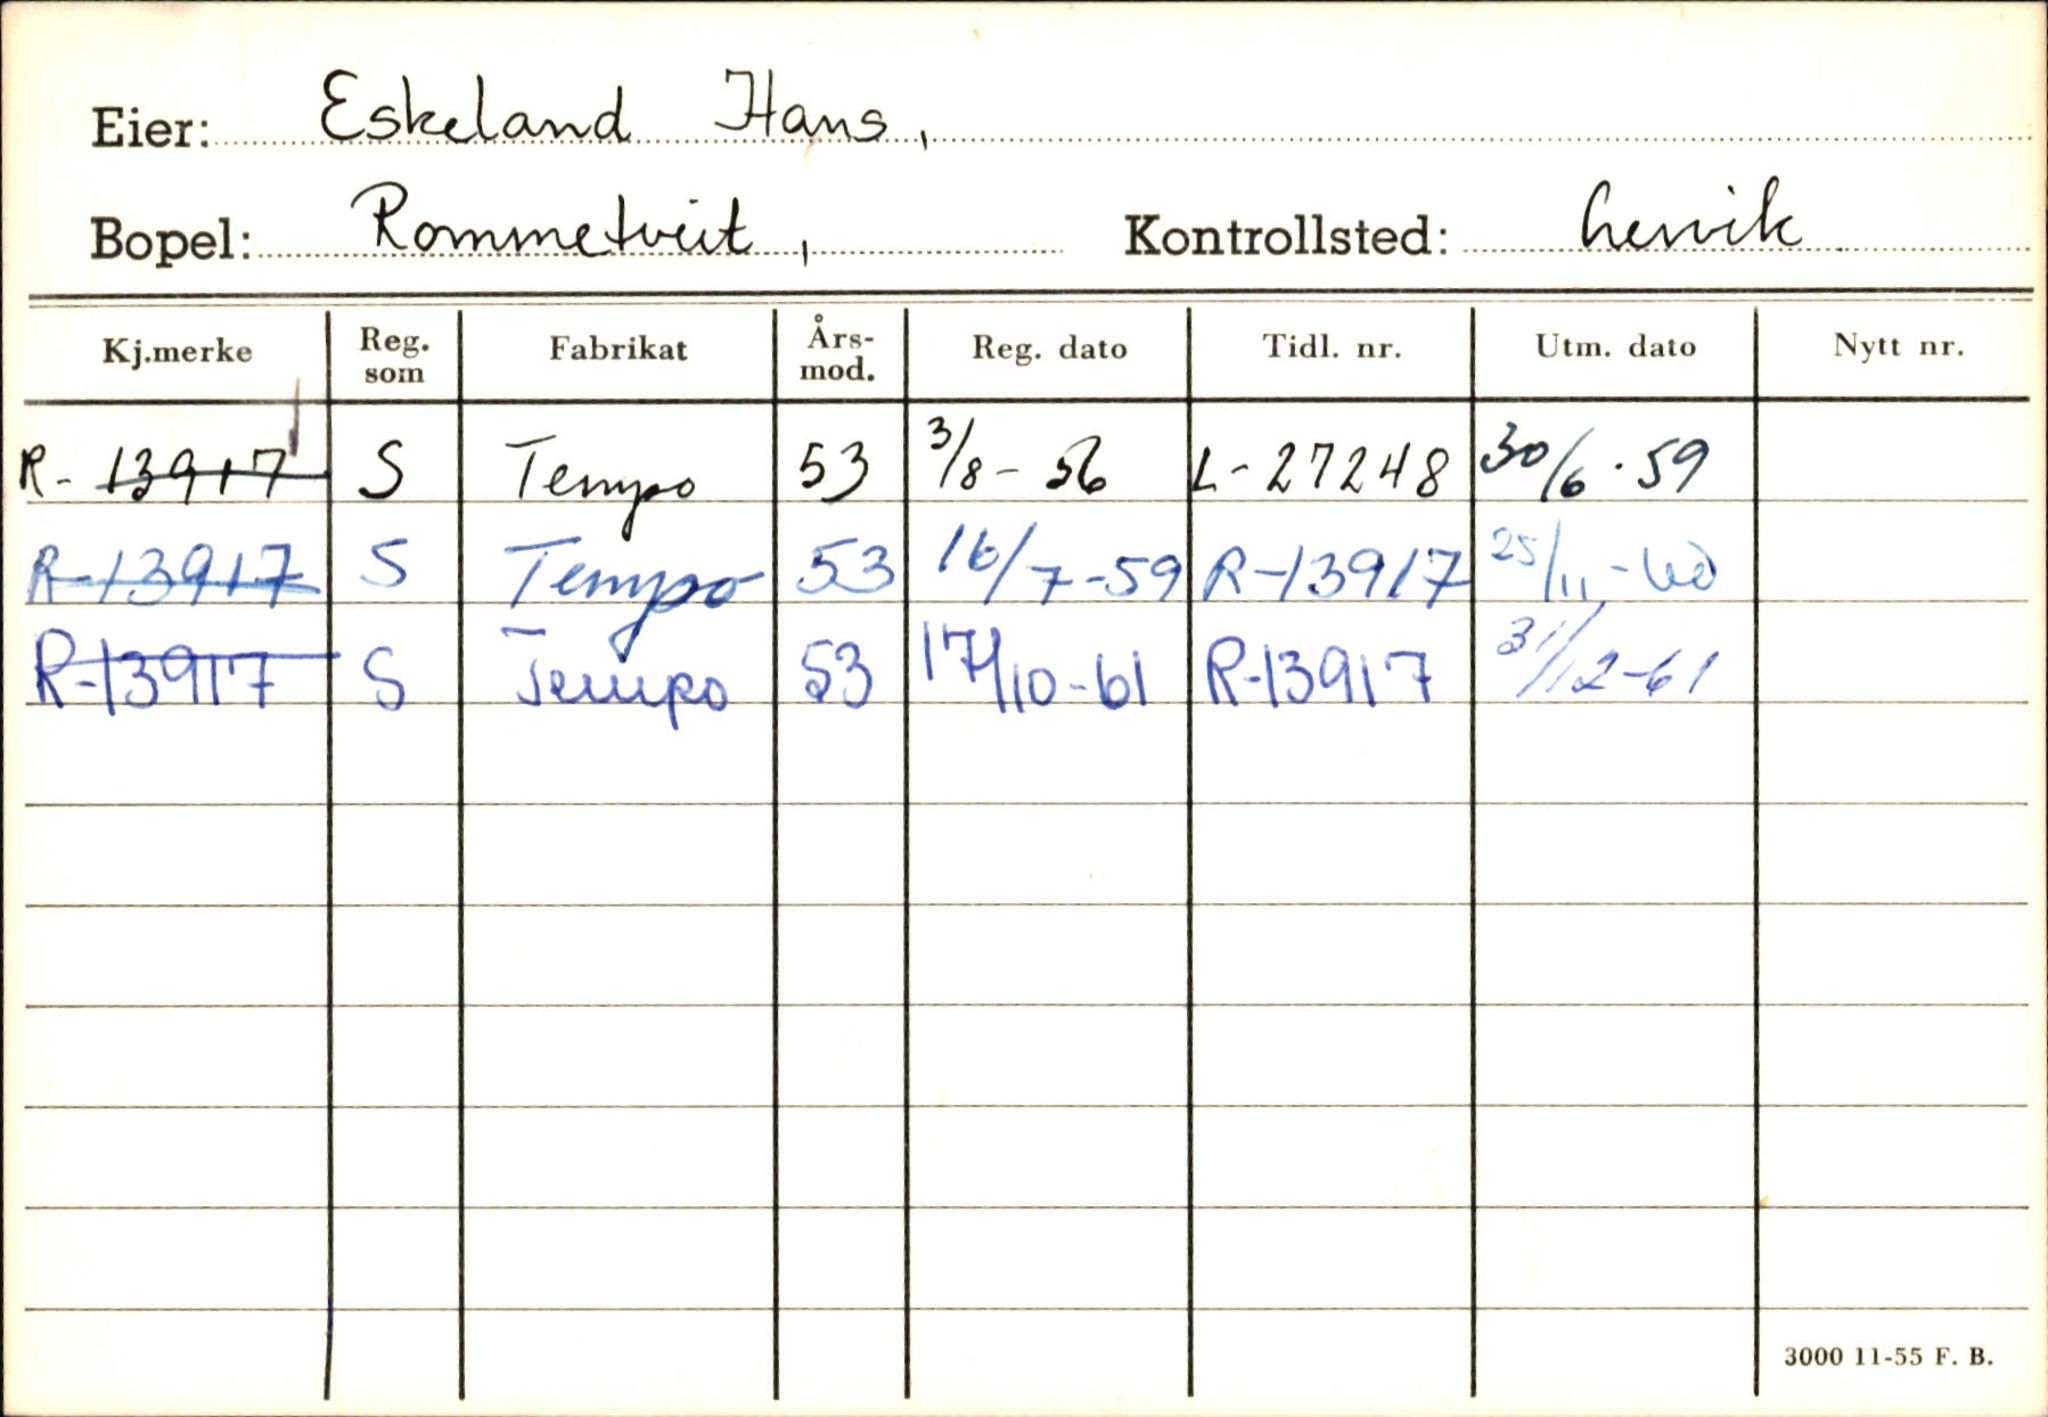 Eier: Eskeland Hans,
Bopel: Rommetveit, Kontrollsted: Lervik
Kj.merke Reg. som Fabrikat Års-mod. Reg. dato Tidl. nr. Utm. dato Nytt nr.
R-13917 S Tempo 53 3/8-56 L-27248 30/6.59
R-13917 S Tempo 53 16/7-59 R-13917 25/11-60
R-13917 S Tempo 53 17/10-61 R-13917 31/12-61
3000 11-55 F. B.